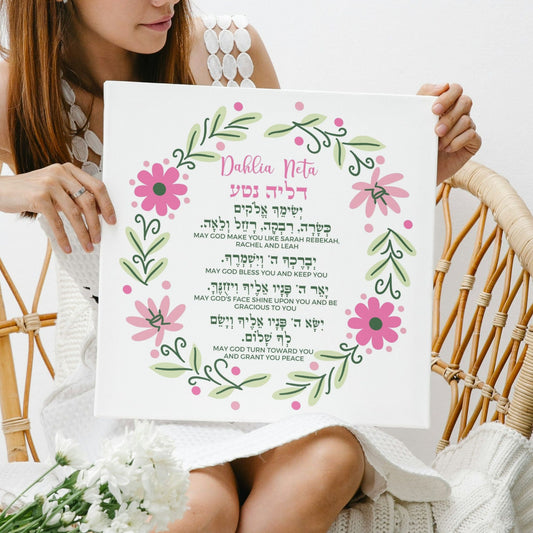 Dahlia Neta
דליה נטע
יְשִׂימֵךְ אֱלֹקִים
כְּשָׂרָה, רִבְקָה, רָחֵל וְלֵאָה.
MAY GOD MAKE YOU LIKE SARAH REBEKAH,
RACHEL AND LEAH
יְבָרֶכְךָ ה׳ וְיִשְׁמְרֶךָ.
MAY GOD BLESS YOU AND KEEP YOU
יָאֵר ה׳ פָּנָיו אֵלֶיךָ וִיחֻנֶּךָּ.
MAY GOD'S FACE SHINE UPON YOU AND BE
GRACIOUS TO YOU
יִשָּׂא ה׳ פָּנָיו אֵלֶיךָ וְיָשֵׂם
לְךָ שָׁלוֹם.
MAY GOD TURN TOWARD YOU
AND GRANT YOU PEACE